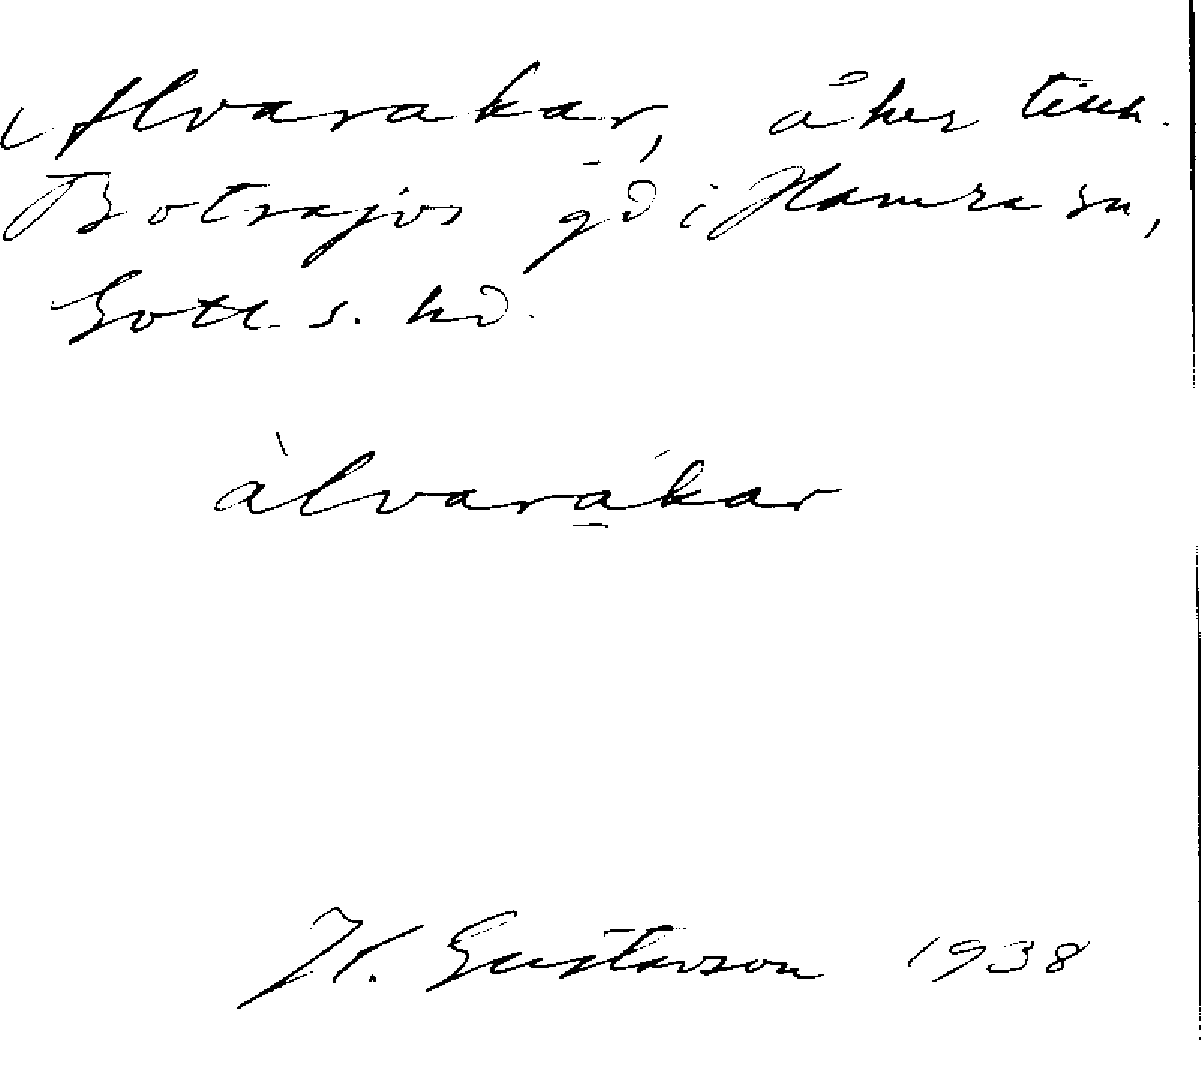 Alvarakar, åker till
Botvajvs gd i Hamra sn,
Gotl. s. hd.
àlvarákar
H. Gustavson 1938